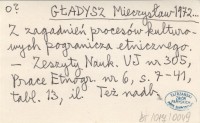 GŁADYSZ Mieczysław 1972...
Z zagadnień procesów kulturo-
wych pogranicza etnicznego.
— Zeszyty Nauk. UJ nr 305,
Prace Etnogr. nr 6, s. 7-41,
tabl. 13, il. Też nadb.